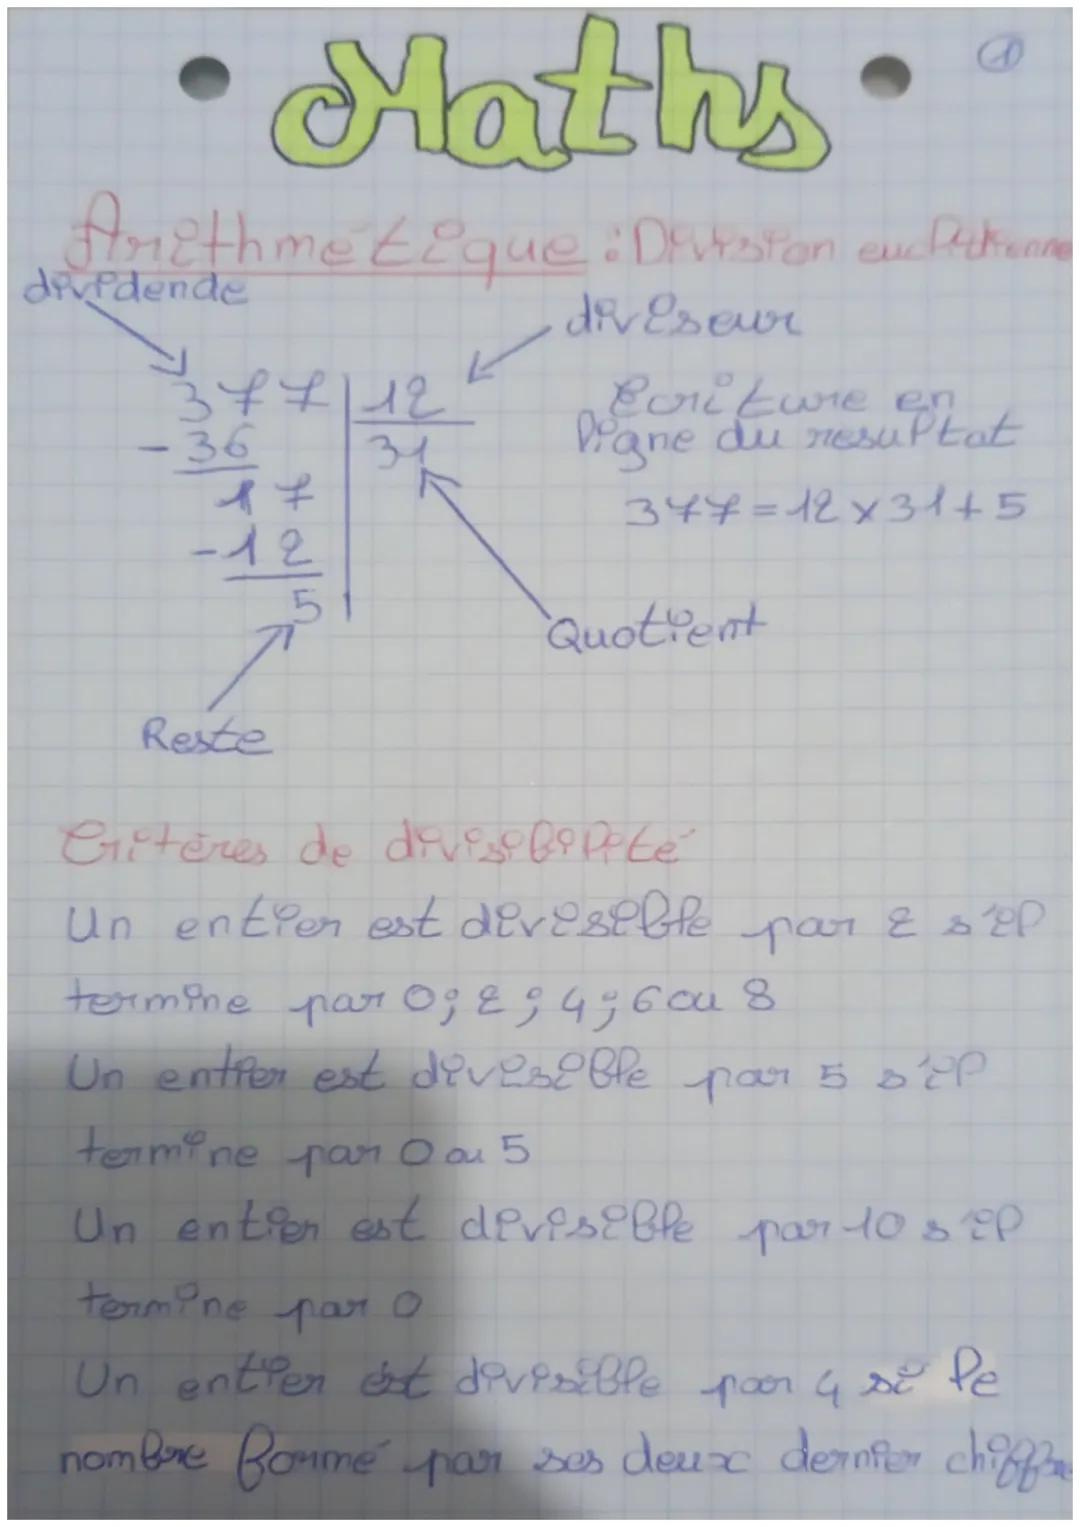 Maths
1
Arithmétique : Division euclidienne
dividende
diviseur
377 | 12
- 36
31
17
- 12
5
Ecriture en
ligne du resultat
377 = 12 x 31 + 5
Quotient
Reste
Critères de divisibilité
Un entier est divisible par 2 s'il
termine par 0; 2; 4; 6 ou 8
Un entier est divisible par 5 s'il
termine par 0 ou 5
Un entier est divisible par 10 s'il
termine par 0
Un entier est divisible par 4 si le
nombre formé par ses deux dernier chiffre